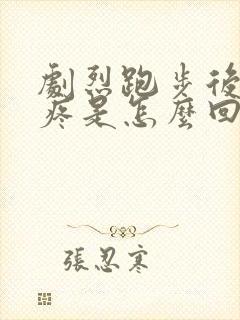 劇烈跑步後
疼是怎麼回
張忍寒